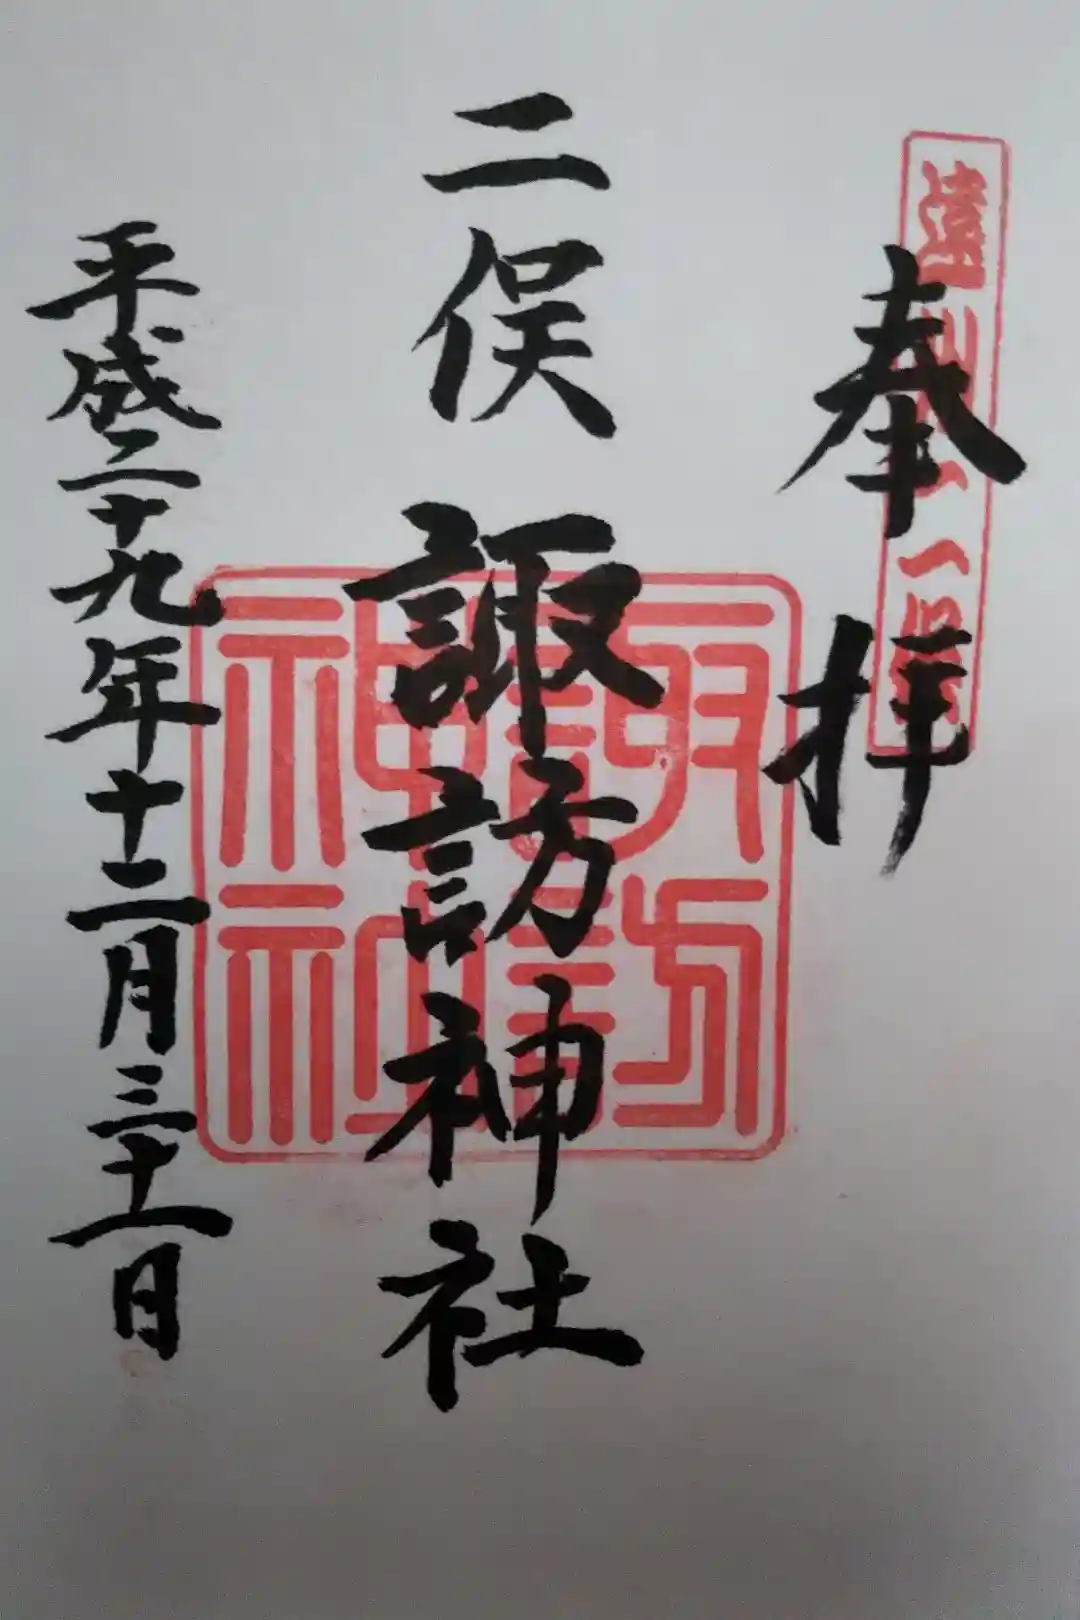 奉拝
二俣諏訪神社
諏訪神社
平成二十九年十二月三十一日